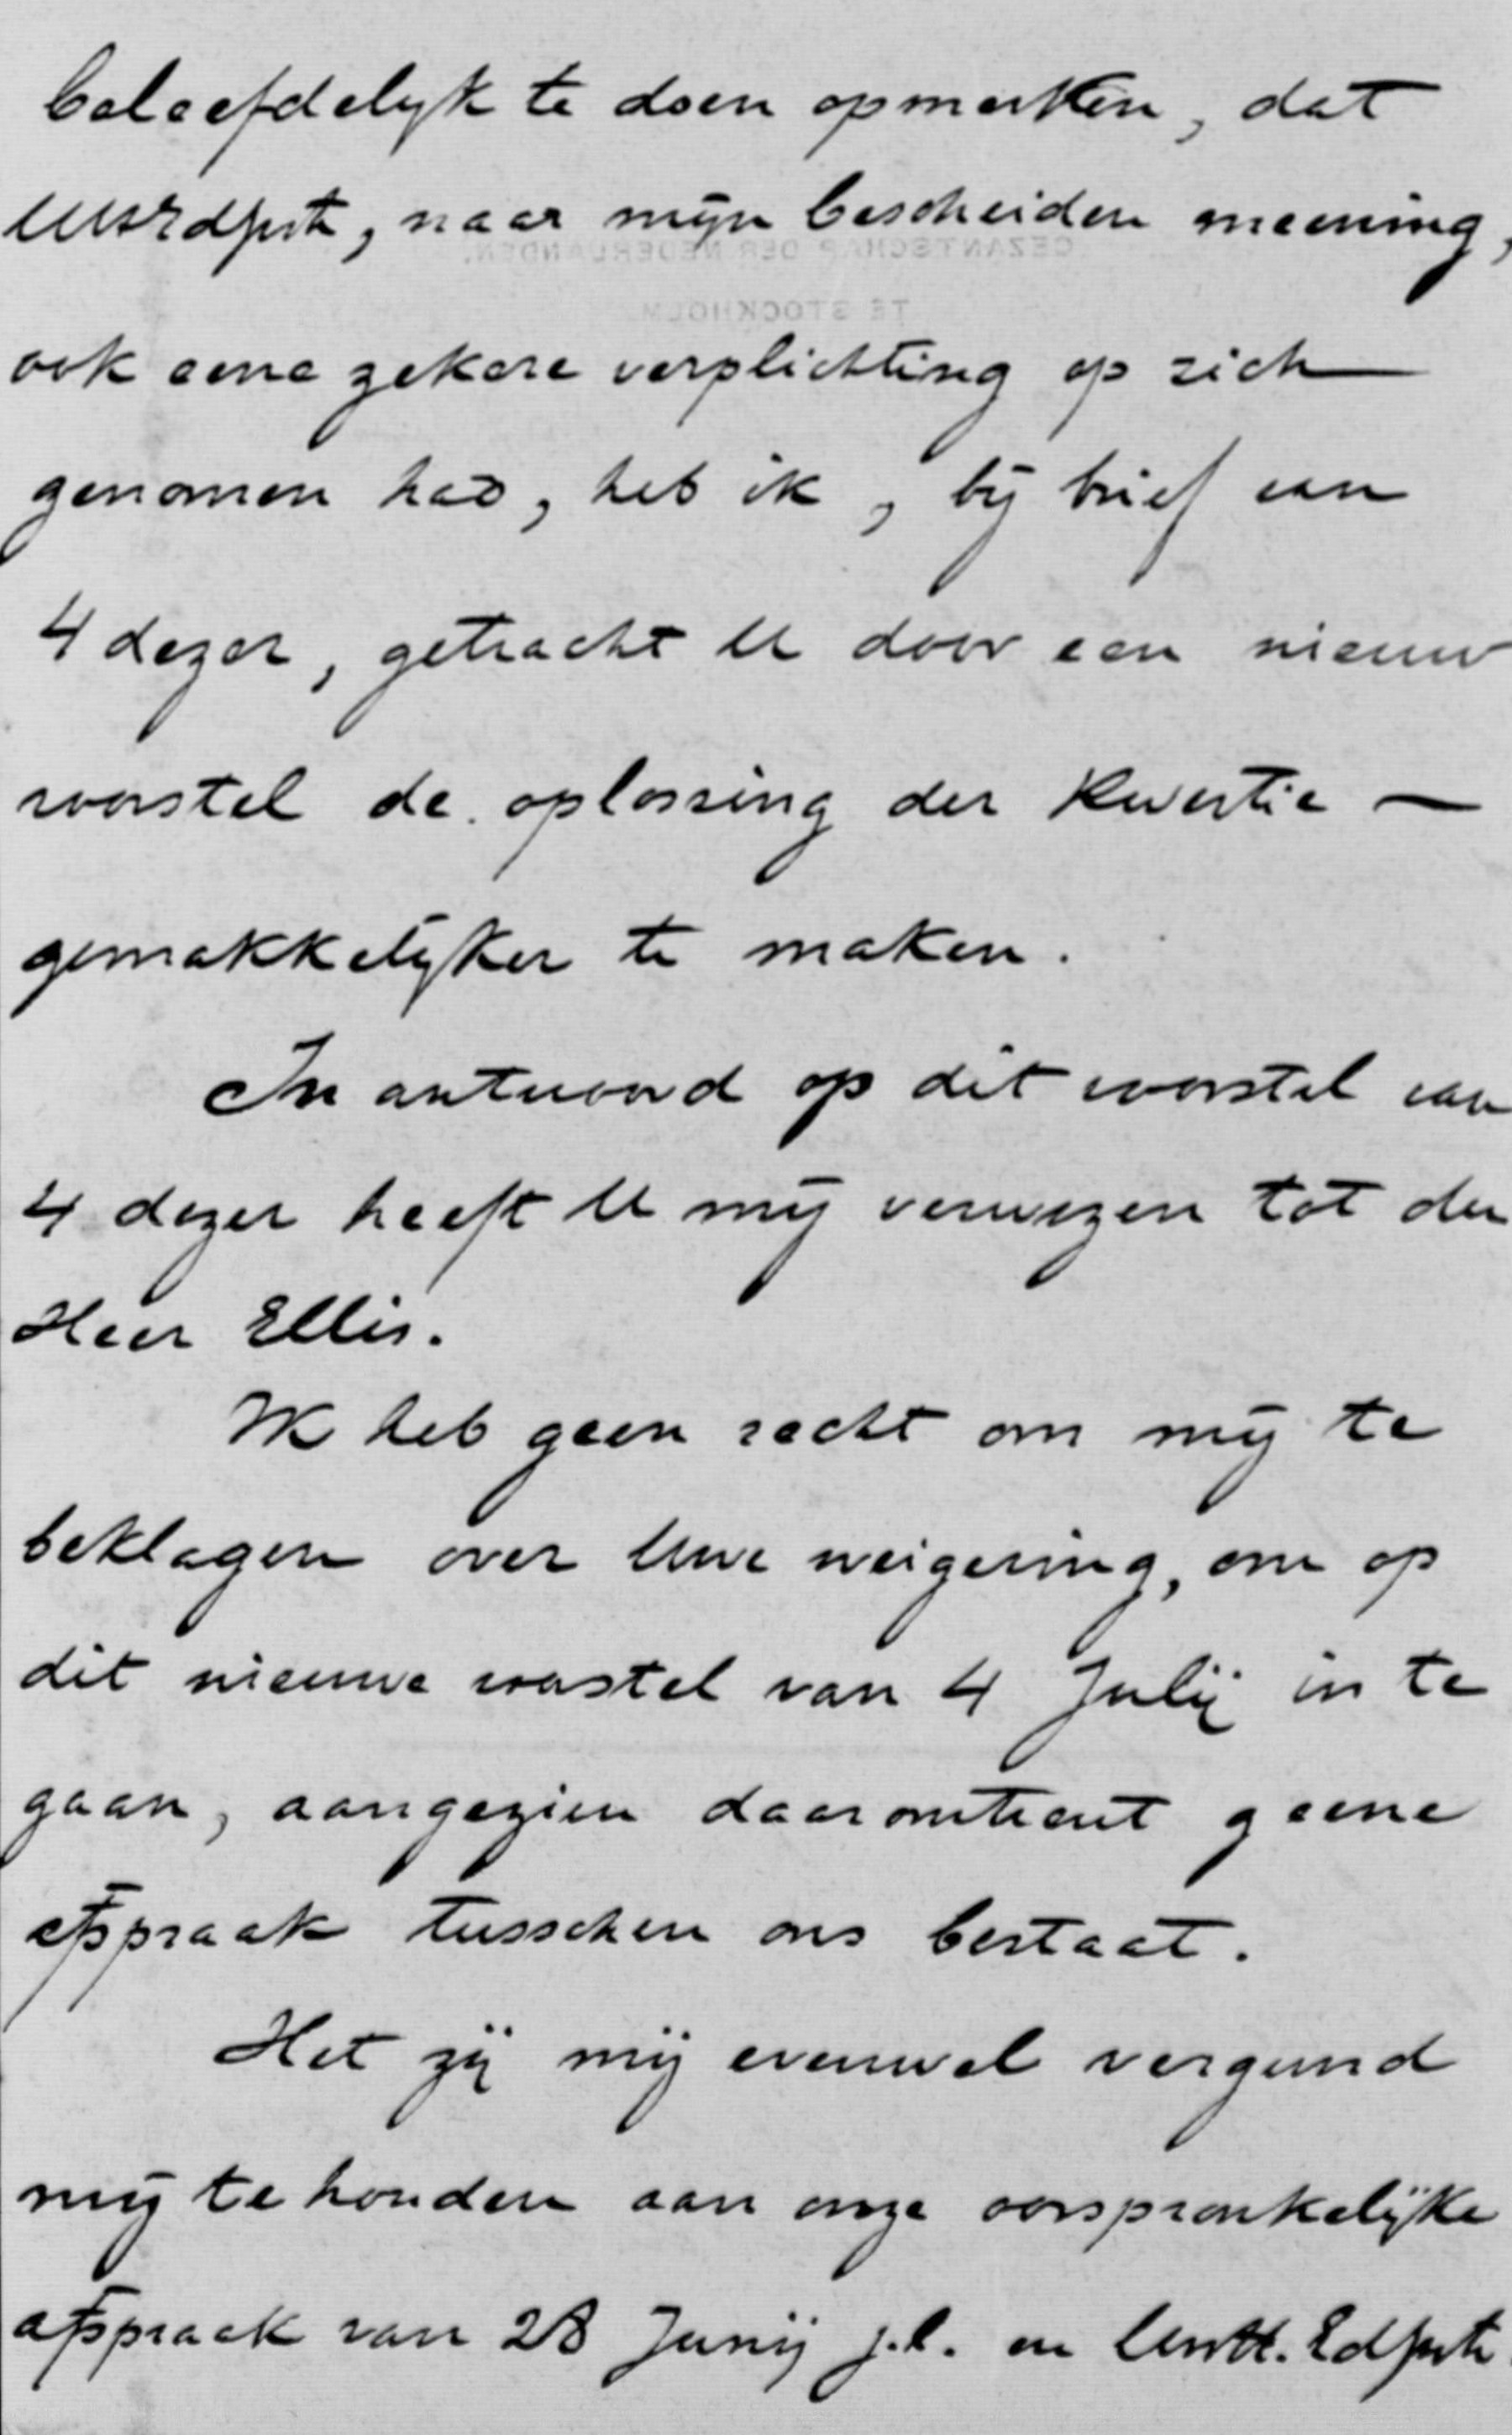 beleefdelijk te doen opmerken, dat
naar mijn bescheiden meening,
GEZANTSCHAP DER NEDERLANDEN.
TE STOCKHOLM
ook eene zekere verplichting op zich
genomen had, heb ik, bij brief van
4 dezer, getracht U door een nieuw
voorstel de oplossing der kwestie —
gemakkelijker te maken.
In antwoord op dit voorstel van
4 dezer heeft U mij verwezen tot den
Heer Ellis.
Ik heb geen recht om mij te
beklagen over Uwe weigering, om op
dit nieuwe voorstel van 4 Julij in te
gaan, aangezien daaromtrent geene
afspraak tusschen ons bestaat.
Het zij mij evenwel vergund
mij te houden aan onze oorspronkelijke
afspraak van 28 Junij j.l. en